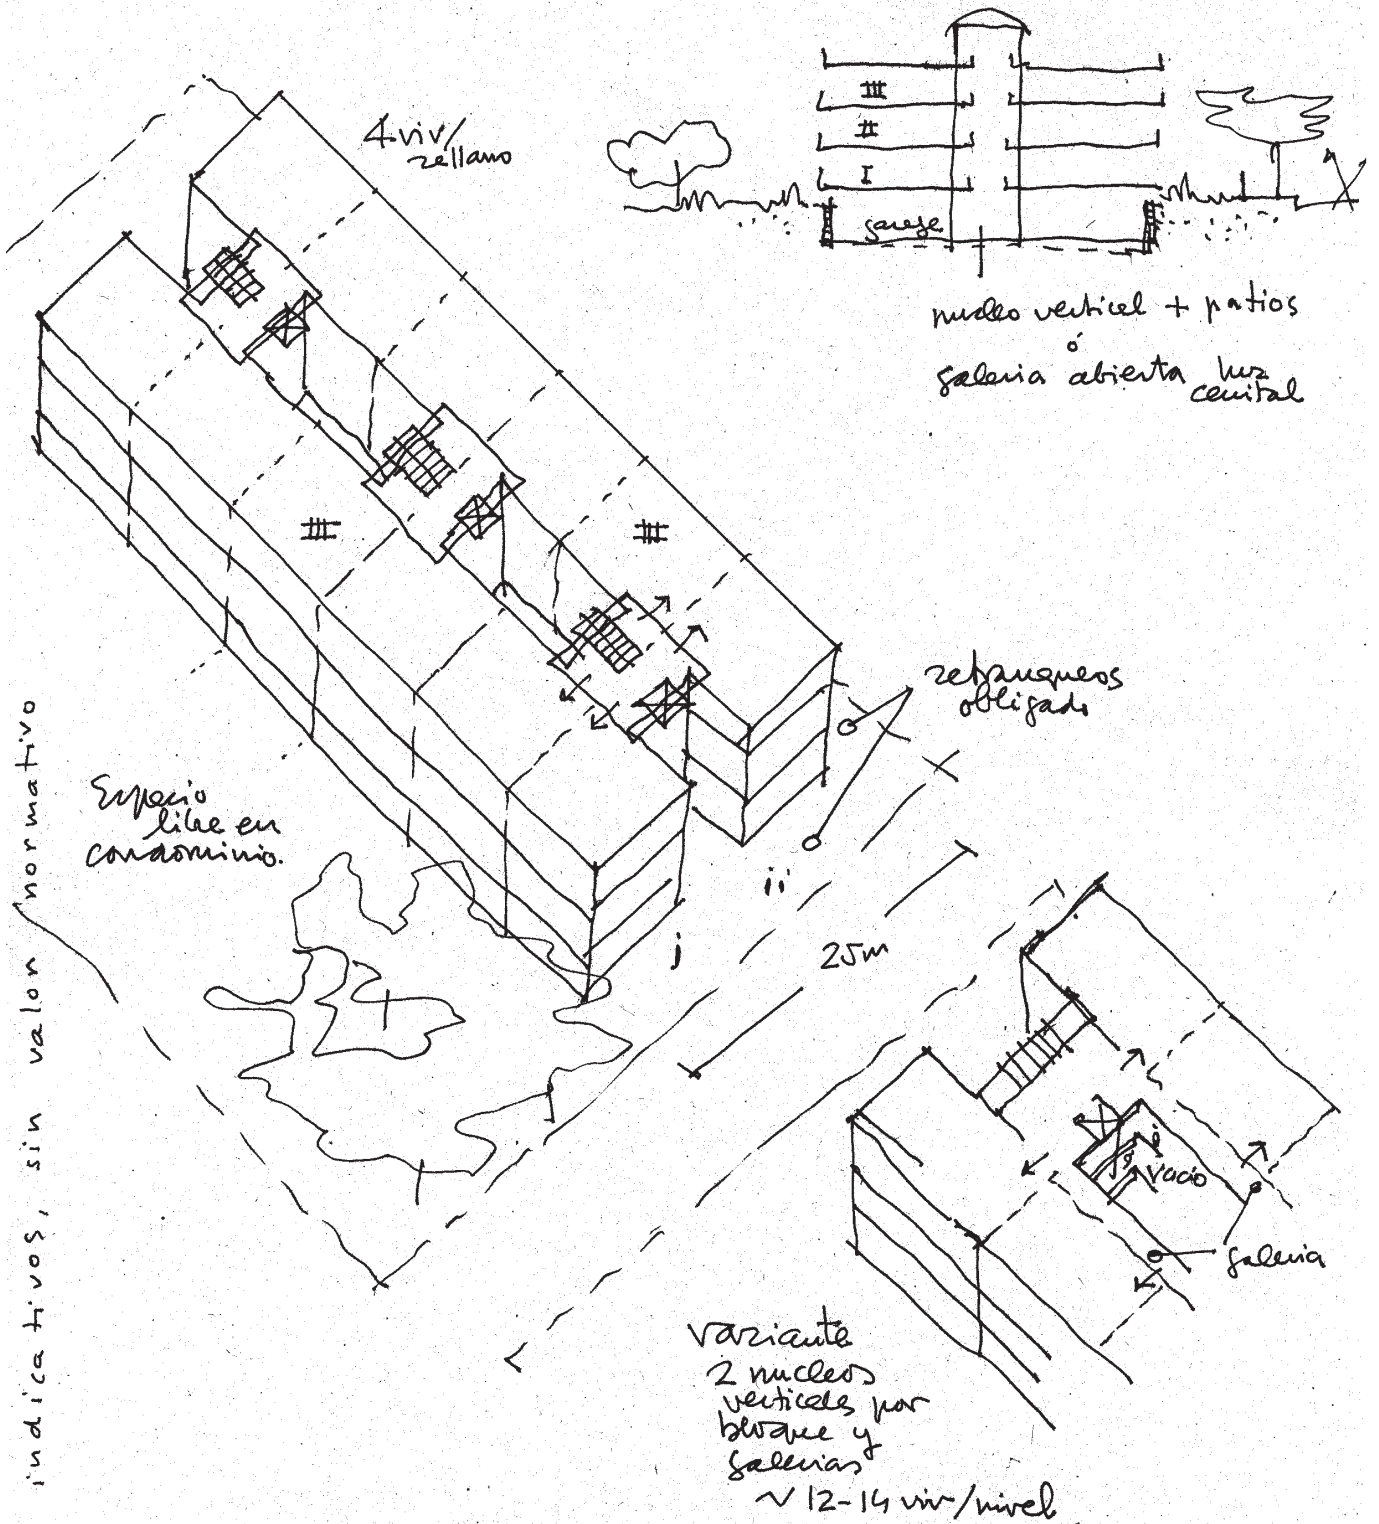 4 viv/
rellano
III
II
I
garage
nucleo vertical + patios
ó
galeria abierta luz
cenital
III
III
retranqueos
obligado
Espacio
libre en
condominio.
ii
j
25m
vacio
galeria
variante
2 nucleos
verticales por
bloque y
galerias
~ 12-14 viv/nivel
indicativos, sin valor normativo